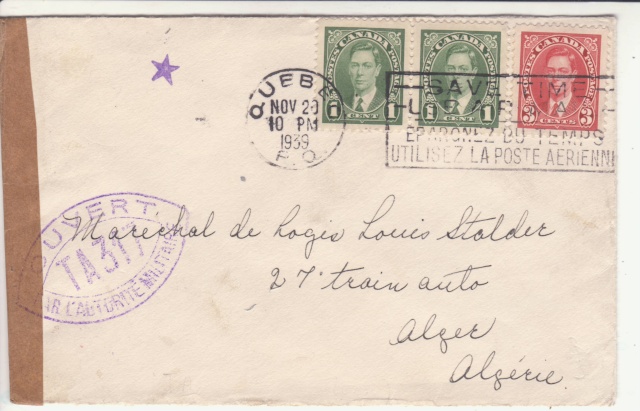 POSTES CANADA POSTAGE
1 CENT 1
POSTES CANADA POSTAGE
1 CENT 1
POSTES CANADA POSTAGE
3 CENTS 3
QUEBE
NOV 20
10 PM
1939
P.Q.
SAVE TIME
USE AIR
ÉPARGNEZ DU TEMPS
UTILISEZ LA POSTE AÉRIENN
OUVERT
TA311
PAR L'AUTORITÉ MILITAIRE
Maréchal de Logis Louis Stalder
27e train auto
Alger
Algérie.